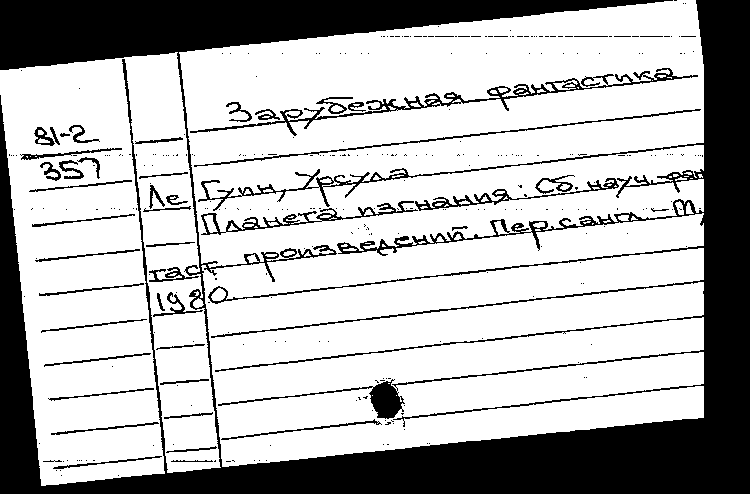 Зарубежная фантастика
81-2
357
Ле Гуин, Урсула
Планета изгнания: Сб. науч.-фан
таст. произведений. Пер. с англ. - М.,
1980.